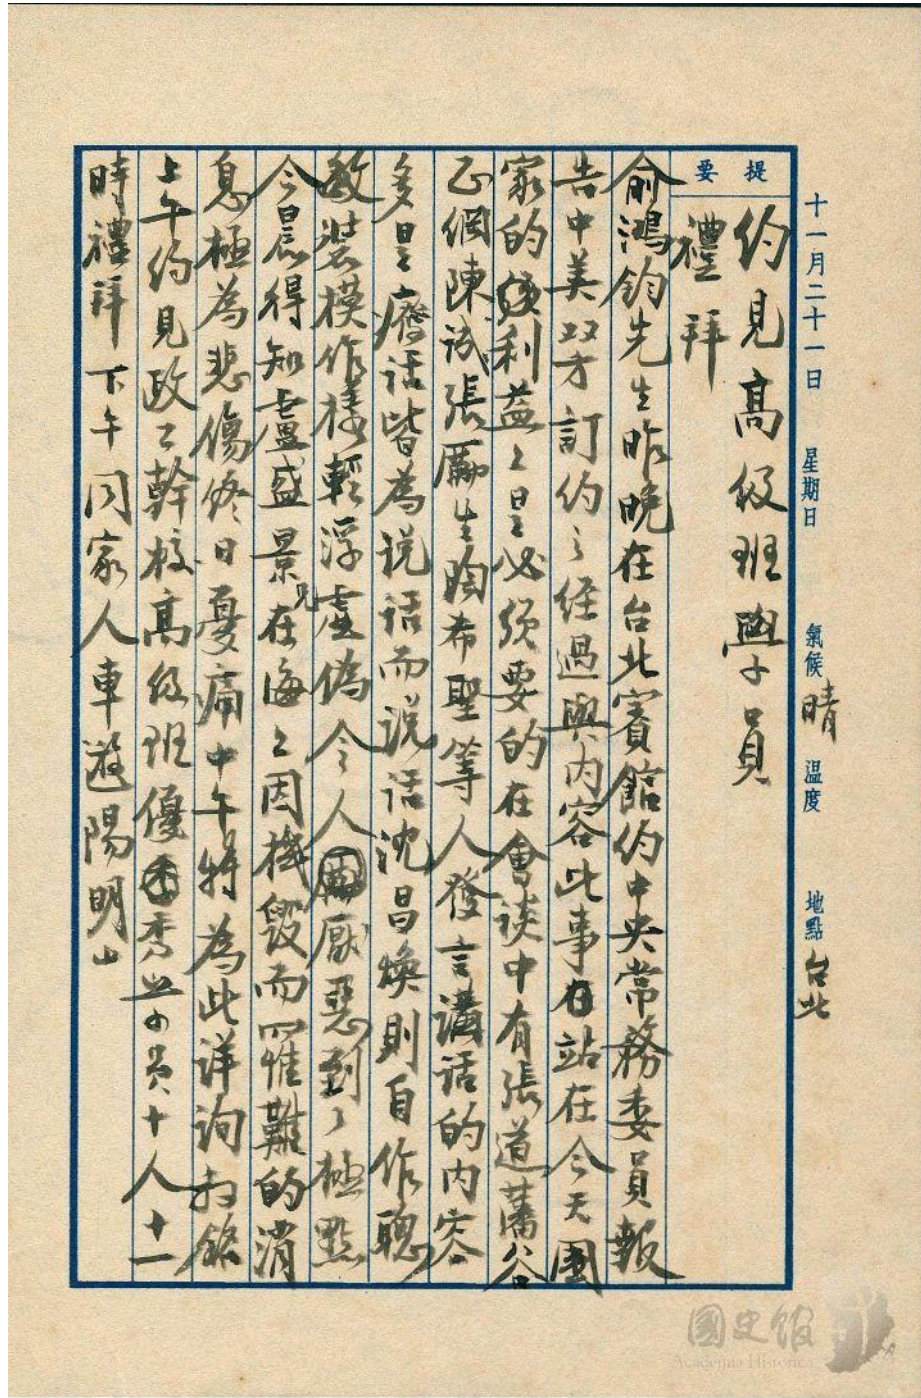 十一月二十一日 星期日 氣候 晴 溫度 地點 台北
提要
約見高級班學員
禮拜
俞鴻鈞先生昨晚在台北賓館約中央常務委員報
告中美双方訂約之經過與內容此事在站在今天國
家的利益上是必須要的在會談中有張道藩谷
正綱陳誠張厲生陶希聖等人發言講話的內容
多是廢話皆為說話而說話沈昌煥則自作聰
敏裝模作樣輕浮虛偽令人厭惡到了極點
今晨得知盧盛景兄在海上因機毀而罹難的消
息極為悲傷終日憂痛中午特為此詳詢叔銘
上午約見政工幹校高級班優秀學員十人十一
時禮拜下午同家人車遊陽明山
國史館
Academia Historica